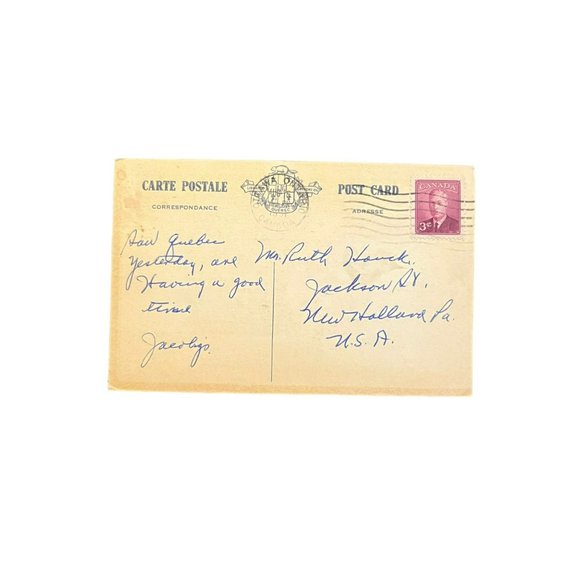 CARTE POSTALE
CORRESPONDANCE
POST CARD
ADRESSE
OTTAWA ONTARIO
CANADA
3¢
Saw Quebec
Yesterday, are
Having a good
time
Jacobys.
Mr. Ruth Houck.
Jackson St.
New Holland Pa.
U.S.A.